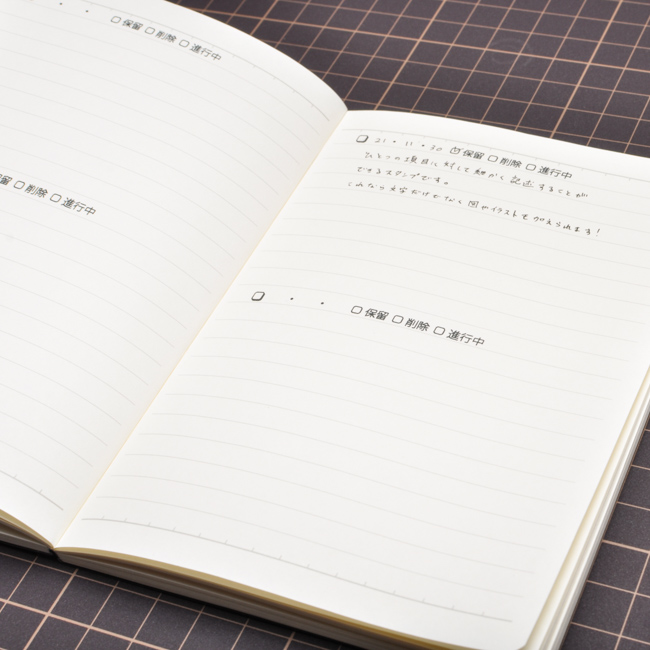 ・ ・ □ 保留 □ 削除 □ 進行中
留 □ 削除 □ 進行中
□ 21・11・30 ☑ 保留 □ 削除 □ 進行中
ひとつの項目に対して細かく記述することが
できるスタンプです。
これなら文字だけでなく図やイラストも加えられます！
□ ・ ・ □ 保留 □ 削除 □ 進行中